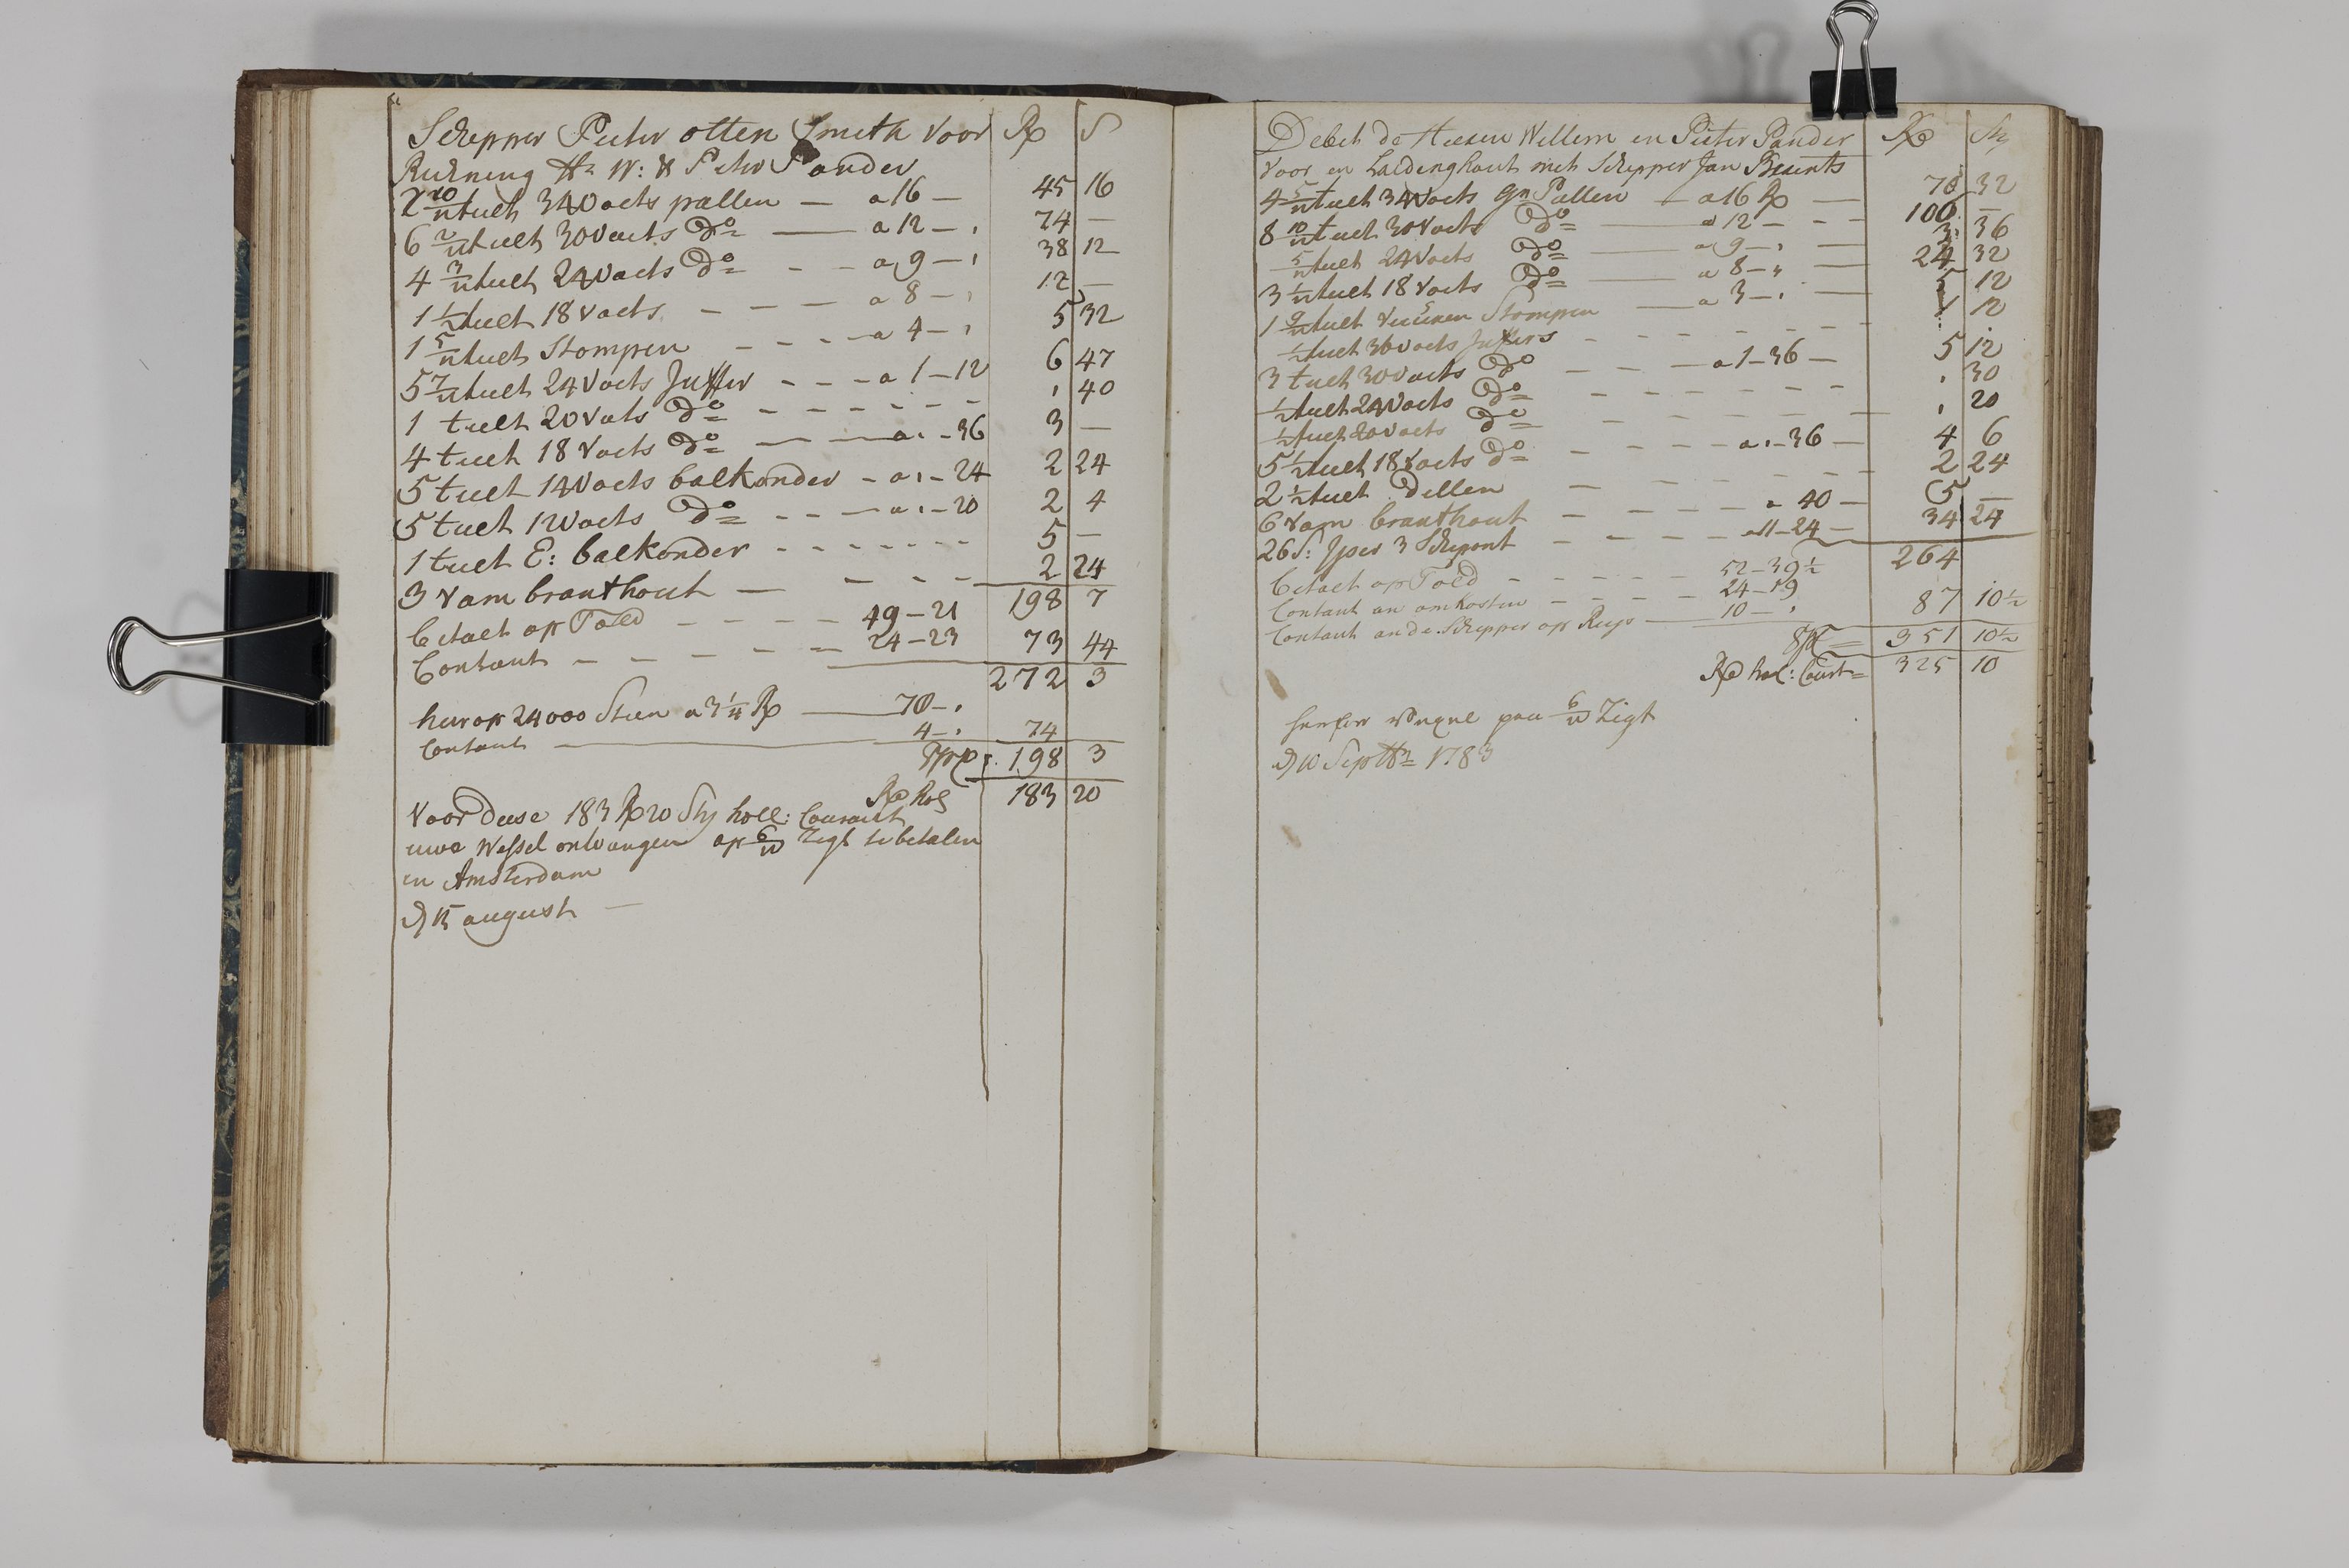 Schepper Pieter otten Smith voor Rp S
Rickning Hr W: & Pieter Pander
2 10/12 tuelt 34 Voets pallen — a 16 — 45 16
6 2/12 tuelt 30 Voets do — a 12 — 74 —
4 3/12 tuelt 24 Voets do — a 9 — 38 12
1 1/2 tuelt 18 Voets — a 8 — 12 —
1 5/12 tuelt Stompen — a 4 — 5 32
5 7/12 tuelt 24 Voets Juffer — a 1 – 12 6 47
1 tuelt 20 Voets do — , 40
4 tuelt 18 Voets do — a , – 36 3 —
5 tuelt 14 Voets balkonder – a , – 24 2 24
5 tuelt 12 Voets do — a , – 20 2 4
1 tuelt E: balkonder — 5 —
3 Vam branthout — 2 24
198 7
betaelt op Toeld — 49 – 21
Contant — 24 – 23 73 44
272 3
hier op 24000 Steen a 3 1/4 Rp — 70 – ,
Contant — 4 – , 74
198 3
Rp hol 183 20
Voor deese 183 Rp 20 Sty holl: Courant
uwe Wessel ontvangen op 6/w Zigt te betalen
in Amsterdam
d 15 august —
Debet de Heeren Willem en Pieter Pander Rp Sty
Voor en Laldenghout met Schepper Jan Beunts
4 5/12 tuelt 34 Voets gn Pallen — a 16 Rp — 70 32
8 10/12 tuelt 30 Voets do — a 12 — 106 —
5/12 tuelt 24 Voets do — a 9 — 3 36
3 1/12 tuelt 18 Voets do — a 8 — 24 32
1 9/12 tuelt Stompen — a 3 — 5 12
1/2 tuelt 36 Voets Juffers — 1 12
3 tuelt 30 Voets do — a 1 – 36 — 5 12
1/2 tuelt 24 Voets do — , 30
1/2 tuelt 20 Voets do — , 20
5 1/2 tuelt 18 Voets do — a , – 36 — 4 6
2 1/2 tuelt Dellen — 2 24
6 Vam branthout — a 40 — 5 —
26 S: Yser 3 Schepont — a 11 – 24 — 34 24
264
betaelt op Toeld — 52 – 39 1/2
Contant an omkosten — 24 – 19
Contant an de Schepper op Reys — 10 – , 87 10 1/2
351 10 1/2
Rp hol: Court = 325 10
6/w Zigt
d 10 Septbr 1783